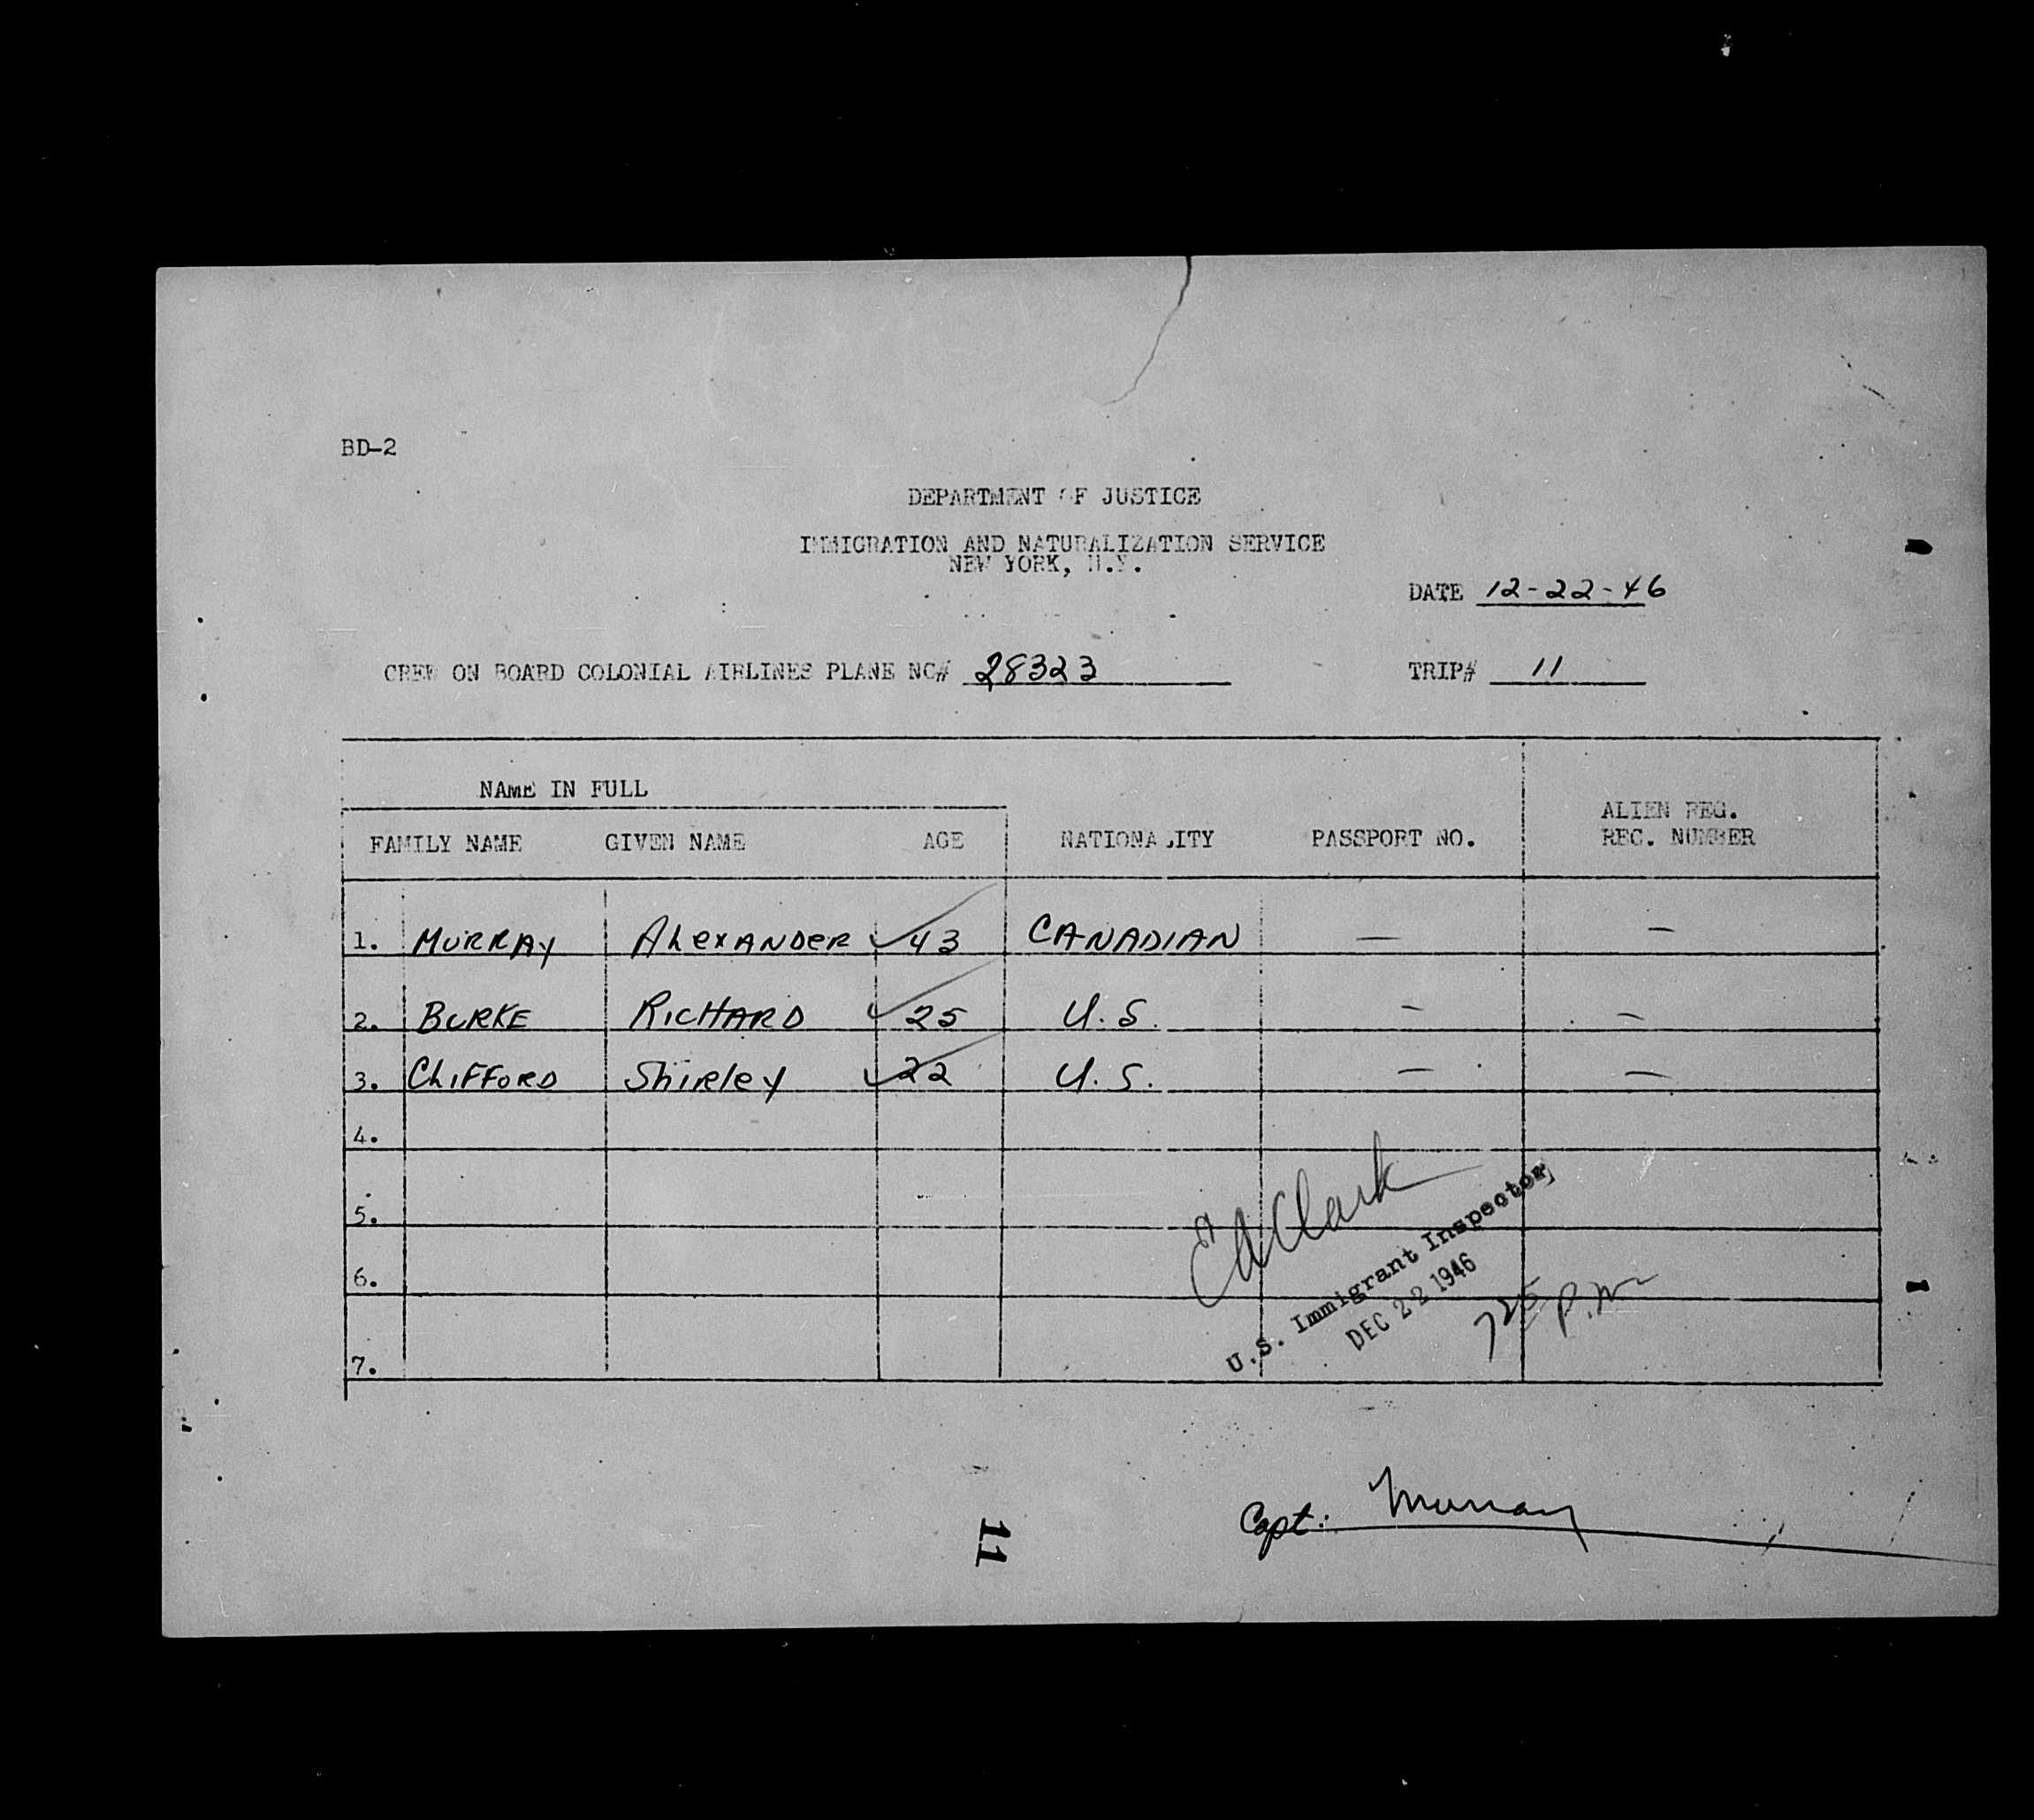 BD-2
DEPARTMENT OF JUSTICE
IMMIGRATION AND NATURALIZATION SERVICE
NEW YORK, N.Y.
DATE 12-22-46
CREW ON BOARD COLONIAL AIRLINES PLANE NC# 28323 TRIP# 11
NAME IN FULL
ALIEN REG.
FAMILY NAME GIVEN NAME AGE NATIONALITY PASSPORT NO. REC. NUMBER
1. MURRAY ALEXANDER ✓ 43 CANADIAN — —
2. BURKE RICHARD ✓ 25 U.S. — —
3. CLIFFORD Shirley ✓ 22 U.S. — —
4.
5.
6.
7.
E A Clark
U.S. Immigrant Inspector
DEC 22 1946
725 P.M
Capt: Murray
11